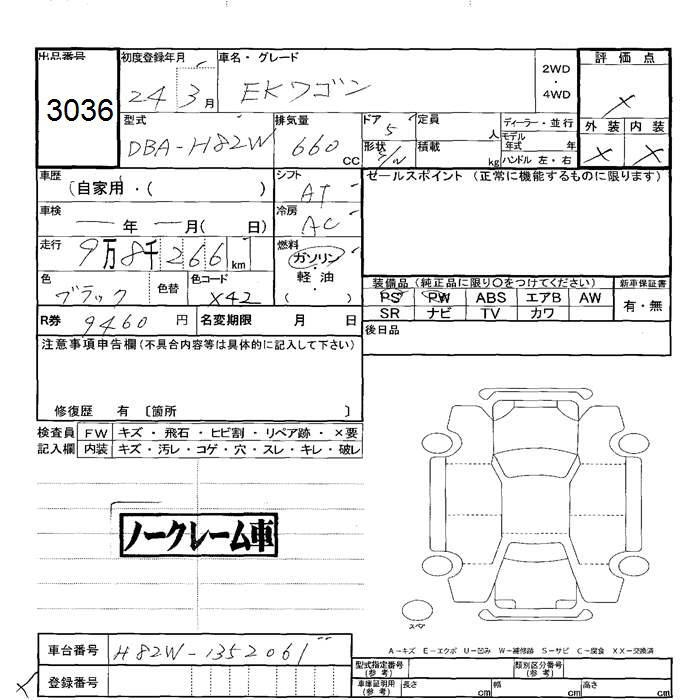 出品番号 初度登録年月 車名・グレード 2WD・4WD 評価点
3036 24 3月 EKワゴン X
型式 排気量 ドア 定員 人 ディーラー・並行 外装 内装
DBA-H82W 660 CC 5 モデル年式 年 X X
形状 S/W 積載 kg ハンドル 左・右
車歴 (自家用・( ) シフト AT セールスポイント(正常に機能するものに限ります)
車検 ー年 ー月( 日) 冷房 AC
走行 9万8千266km 燃料 ガソリン・軽油・( )
色 ブラック 色替 色コード X42
装備品(純正品に限り〇をつけてください) 新車保証書
PS PW ABS エアB AW 有・無
SR ナビ TV カワ
R券 9460円 名変期限 月 日 後日品
注意事項申告欄(不具合内容等は具体的に記入して下さい)
修復歴 有 〔箇所 〕
検査員 FW キズ・飛石・ヒビ割・リペア跡・×要
記入欄 内装 キズ・汚レ・コゲ・穴・スレ・キレ・破レ
ノークレーム車
スペア
A-キズ E-エクボ U-凹み W-補修跡 S-サビ C-腐食 XX-交換済
車台番号 H82W-1352061
登録番号
型式指定番号(参考) 類別区分番号(参考)
車庫証明用(参考) 長さ cm 幅 cm 高さ cm